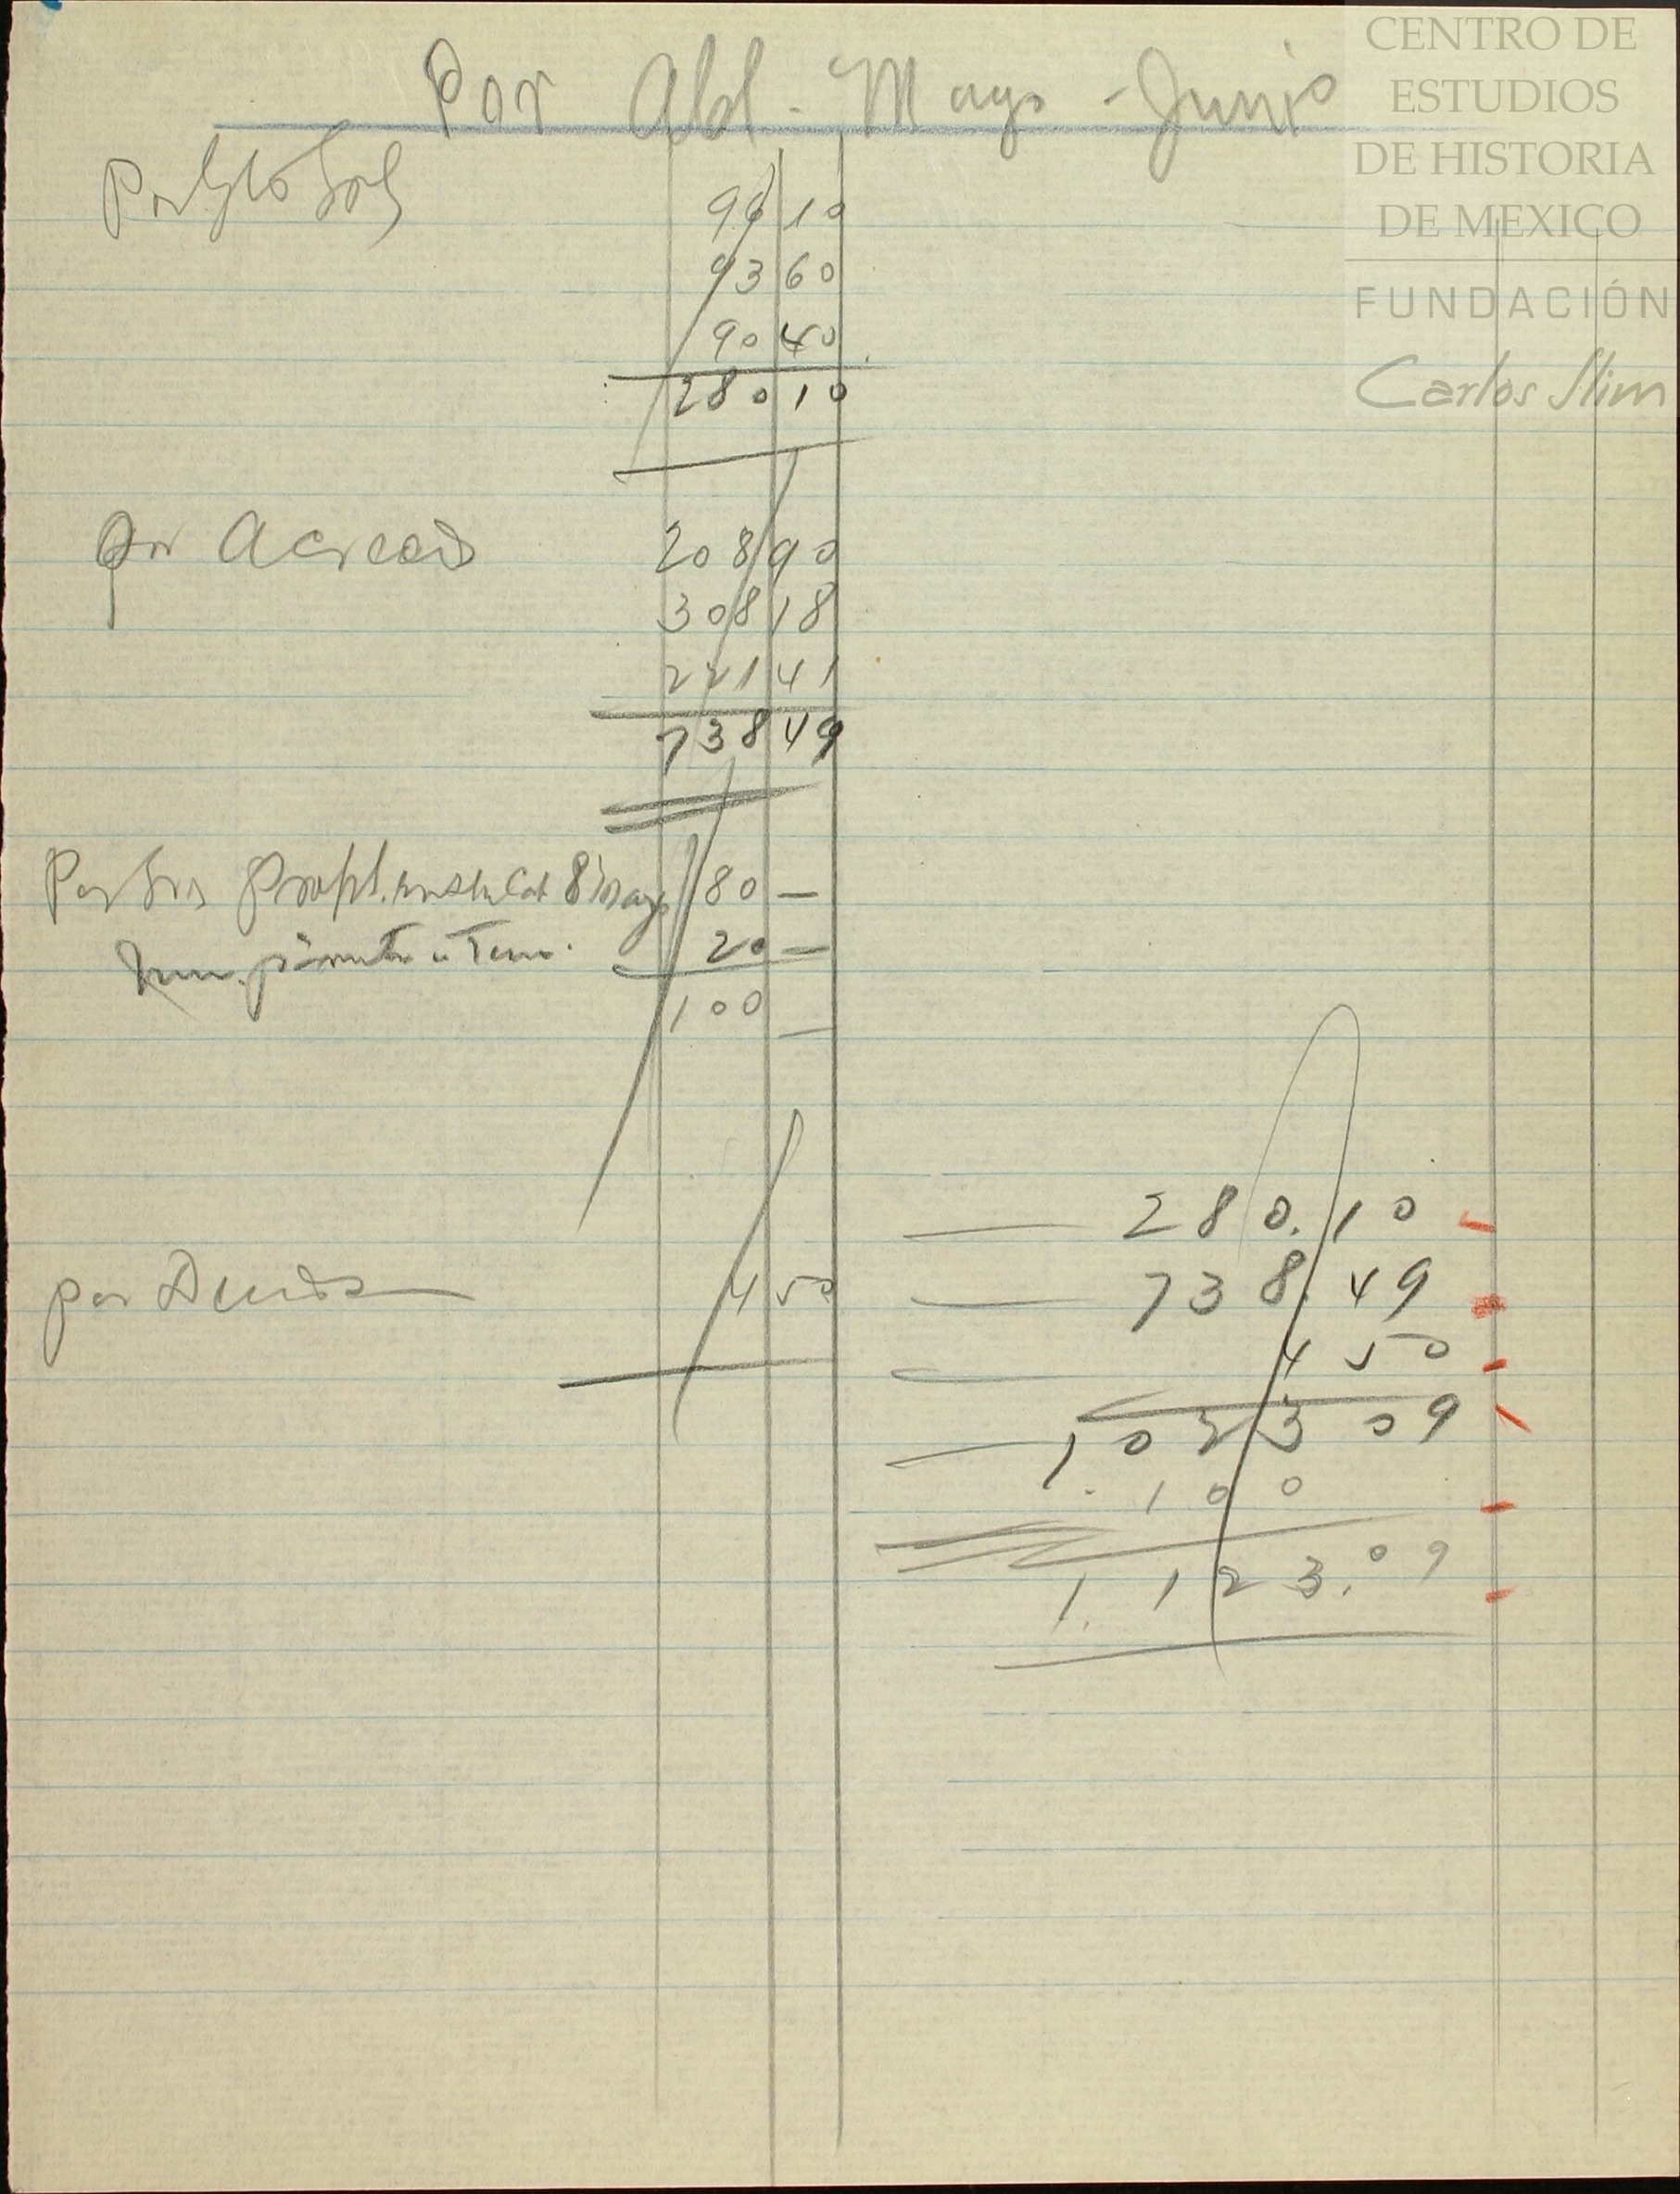 Por Abl - Mayo - Junio
CENTRO DE
ESTUDIOS
DE HISTORIA
DE MEXICO
FUNDACIÓN
Carlos Slim
Por
96 10
93 60
90 40
280 10
por Acreeds
208 90
308 18
221 41
738 49
Por 8 Mayo 80 —
20 —
100 —
por 4 50
280.10
738.49
4 50
1023 09
100
1.123.09